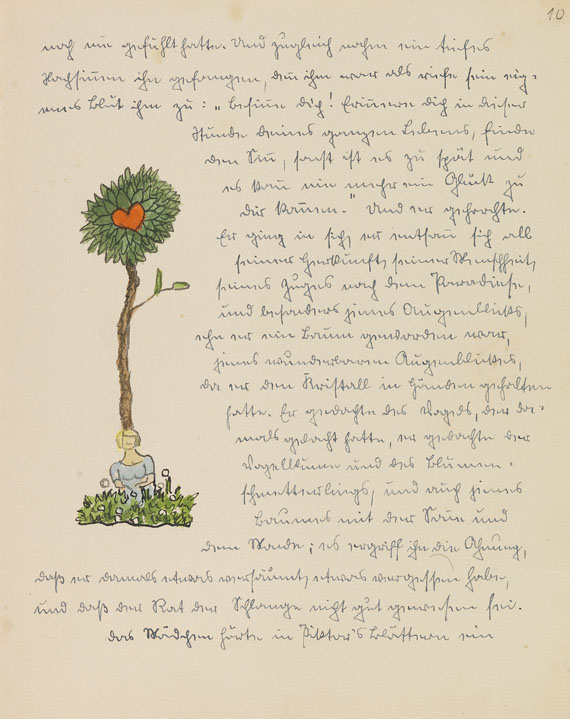 10
noch nie gefühlt hatte. Und zugleich nahm ein tiefes
Nachsinnen ihn gefangen, denn ihm war als riefe sein eig-
enes Blut ihm zu: „Besinne dich! Erinnere dich in dieser
Stunde deines ganzen Lebens, finde
den Sinn, sonst ist es zu spät und
es kann nie mehr ein Glück zu
dir kommen." Und er gehorchte.
Er ging in sich, er entsann sich all
seiner Herkunft, seiner Menschheit,
seines Zuges nach dem Paradiese,
und besonders jenes Augenblicks,
ehe er ein Baum geworden war,
jenes wunderbaren Augenblickes,
da er den Kristall in Händen gehalten
hatte. Er gedachte des Vogels, der da-
mals gelacht hatte, er gedachte der
Vogelblume und des Blumen-
schmetterlings, und auch jenes
Baumes mit der Sonne und
dem Monde; es ergriff ihn die Ahnung,
daß er damals etwas versäumt, etwas vergessen habe,
und daß der Rat der Schlange nicht gut gewesen sei.
Das Mädchen hörte in Piktor's Blättern ein